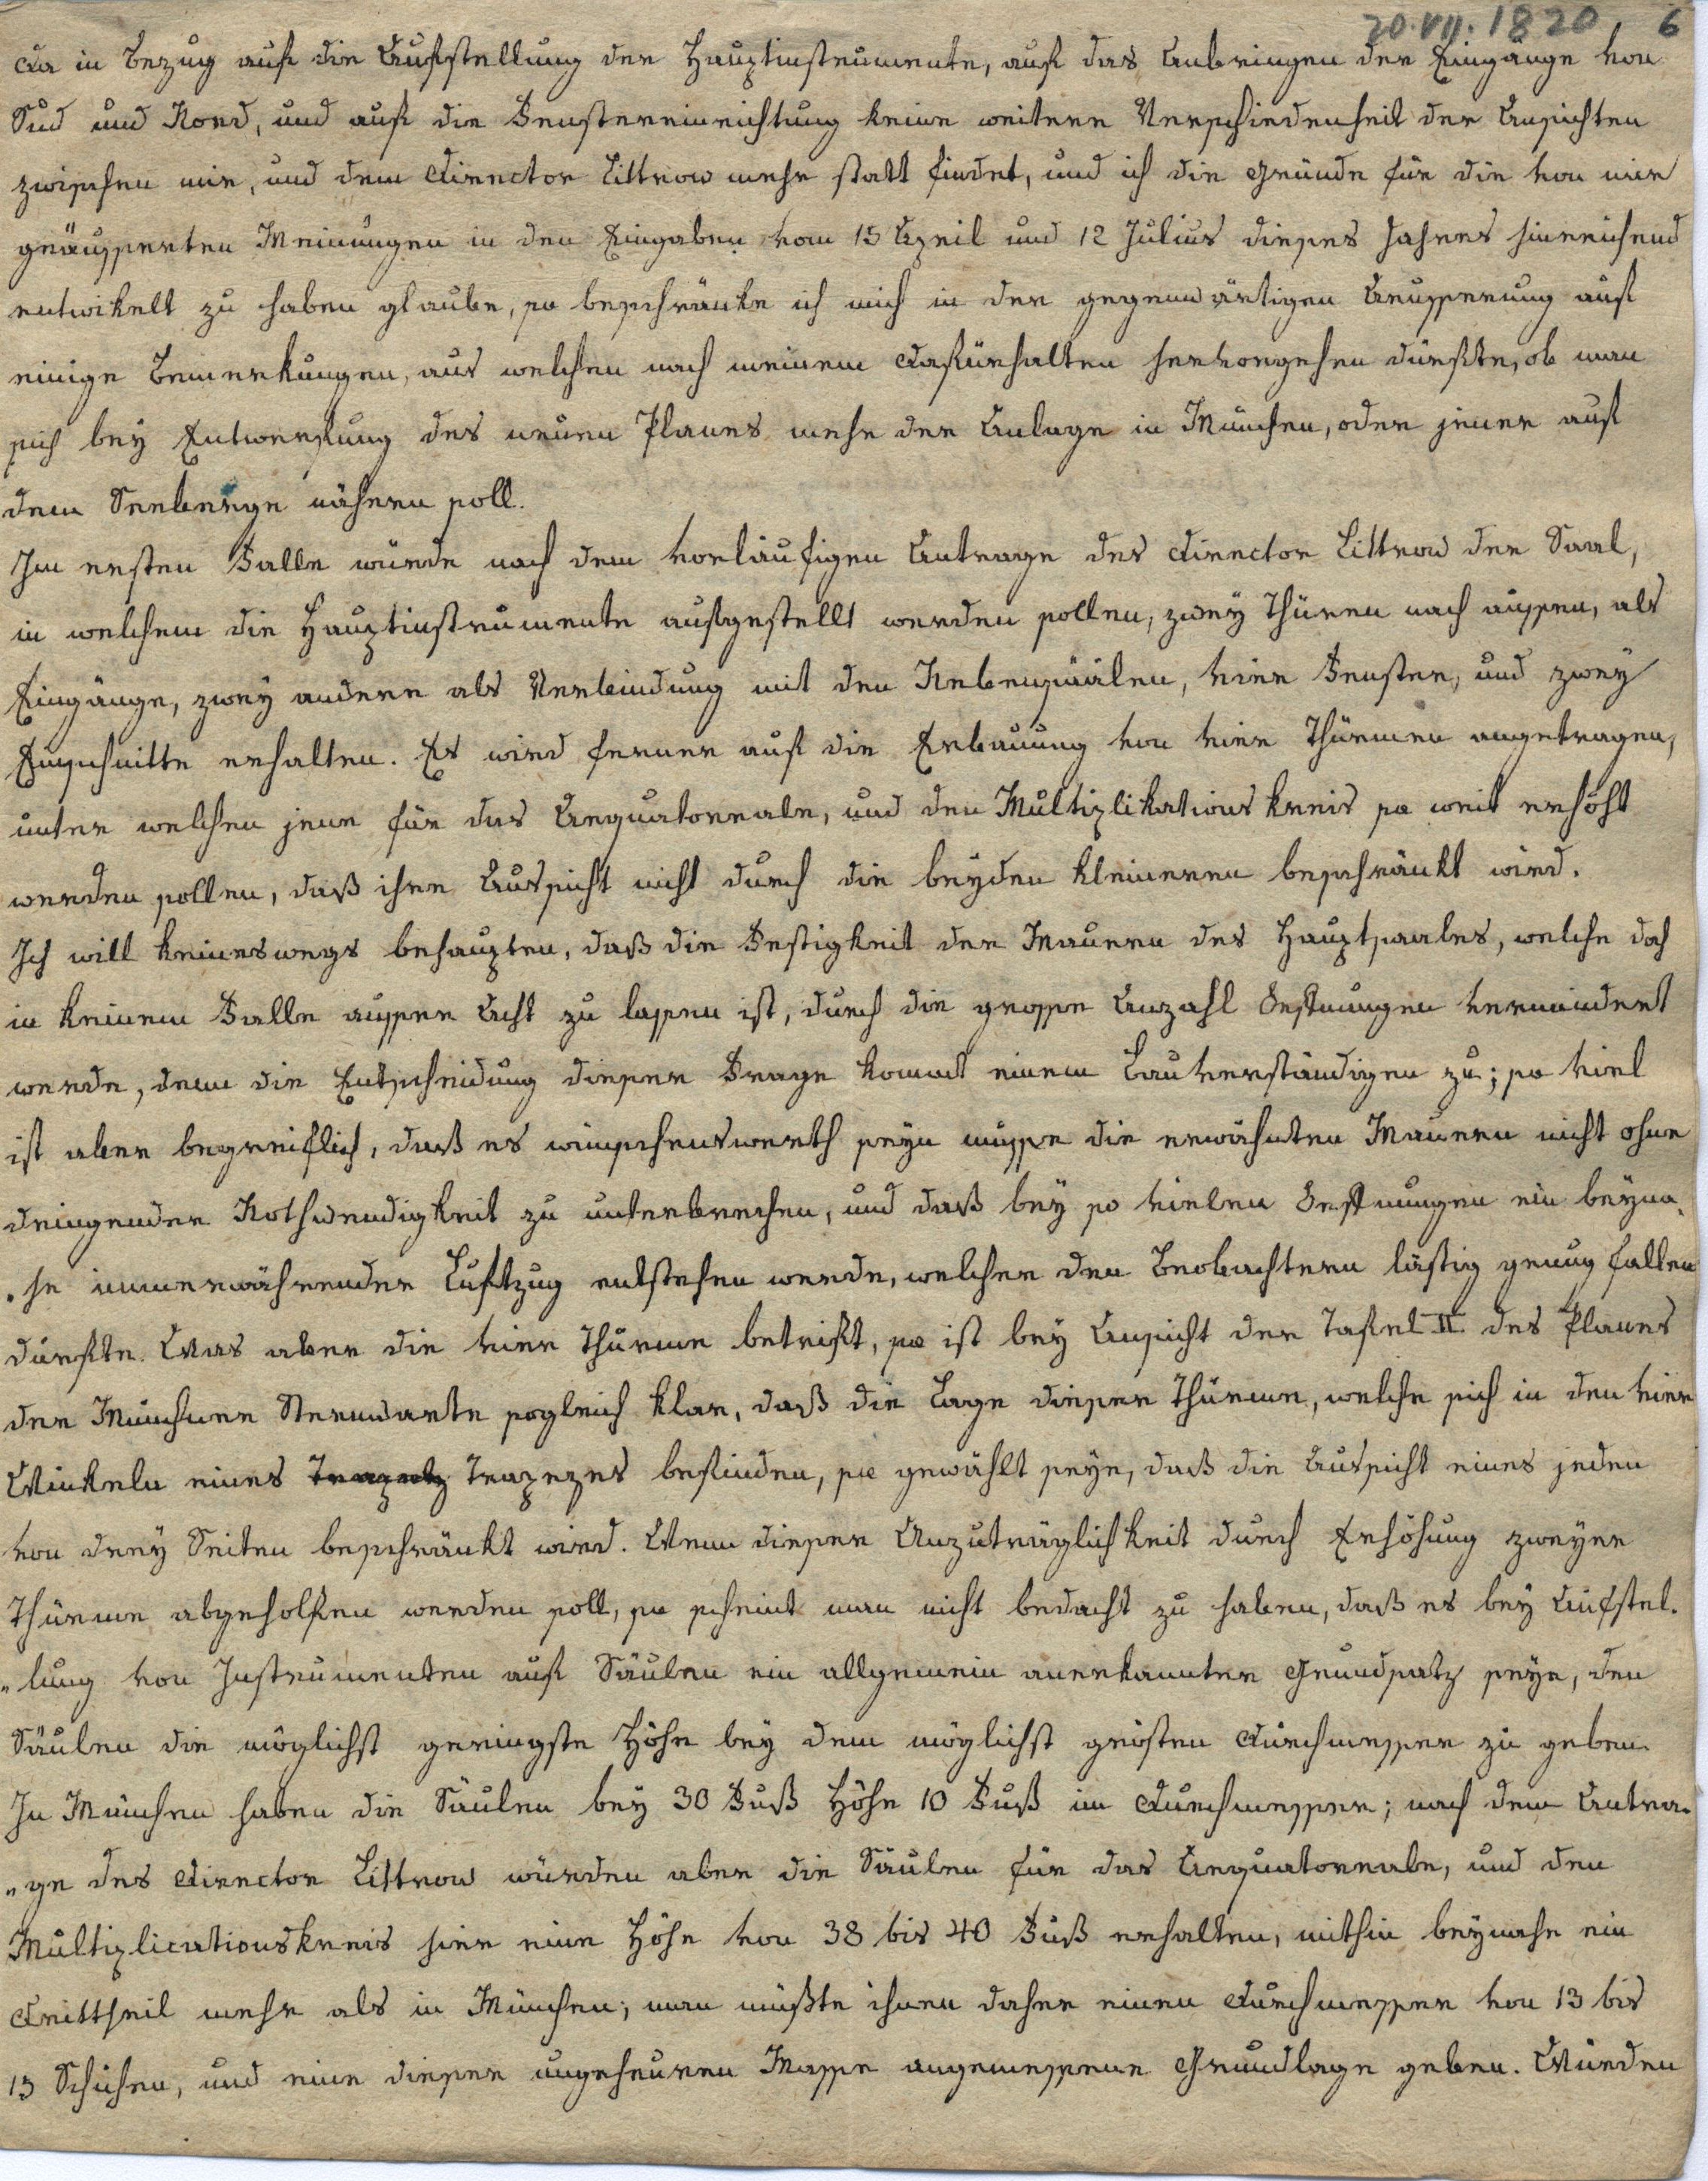 20.VII.1820 6
Da in Bezug auf die Aufstellung der Hauptinstrumente, auf das Anbringen der Eingänge von
Süd und Nord, und auf die Fenstereinrichtung keine weitere Verschiedenheit der Ansichten
zwischen mir, und dem Director Littrow mehr statt findet, und ich die Gründe für die von mir
geäusserten Meinungen in den Eingaben vom 15 April und 12 Julius dieses Jahres hinreichend
entwikelt zu haben glaube, so beschränke ich mich in der gegenwärtigen Aeusserung auf
einige Bemerkungen, aus welchen nach meinem Dafürhalten hervorgehen dürfte, ob man
sich bey Entwerfung des neuen Planes mehr der Anlage in München, oder jener auf
dem Seeberge nähern soll.
Im ersten Falle würde nach dem vorläufigen Antrage des Director Littrow der Saal,
in welchem die Hauptinstrumente aufgestellt werden sollen, zwey Thüren nach aussen, als
Eingänge, zwey andere als Verbindung mit den Nebensäälen, vier Fenster, und zwey
Einschnitte erhalten. Es wird ferner auf die Erbauung von vier Thürmen angetragen,
unter welchen jene für das Aequatoreale, und den Multiplikationskreis so weit erhöht
werden sollen, daß ihre Aussicht nicht durch die beyden kleineren beschränkt wird.
Ich will keineswegs behaupten, daß die Festigkeit der Mauern des Hauptsaales, welche doch
in keinem Falle ausser Acht zu lassen ist, durch die grosse Anzahl Oefnungen vermindert
werde, denn die Entscheidung dieser Frage kommt einem Bauverständigen zu; so viel
ist aber begreiflich, daß es wünschenswerth seyn müsse die erwähnten Mauern nicht ohne
dringender Nothwendigkeit zu unterbrechen, und daß bey so vielen Oeffnungen ein beyna„
„he immerwährender Luftzug entstehen werde, welcher den Beobachtern lästig genug fallen
dürfte. Was aber die vier Thürme betrift, so ist bey Ansicht der Tafel II des Planes
der Münchner Sternwarte sogleich klar, daß die Lage dieser Thürme, welche sich in den vier
Winkeln eines Trapetz Trapezes befinden, so gewählt seye, daß die Aussicht eines jeden
von drey Seiten beschränkt wird. Wenn dieser Unzuträglichkeit durch Erhöhung zweyer
Thürme abgeholfen werden soll, so scheint man nicht bedacht zu haben, daß es bey Aufstel„
„lung von Instrumenten auf Säulen ein allgemein anerkannter Grundsatz seye, den
Säulen die möglichst geringste Höhe bey dem möglichst grösten Durchmesser zu geben.
In München haben die Säulen bey 30 Fuß Höhe 10 Fuß im Durchmesser; nach dem Antra„
„ge des Director Littrow würden aber die Säulen für das Aequatoreale, und den
Multiplicationskreis hier eine Höhe von 38 bis 40 Fuß erhalten, mithin beynahe ein
Drittheil mehr als in München; man müßte ihnen daher einen Durchmesser von 13 bis
15 Schuhen, und eine dieser ungeheuren Masse angemessene Grundlage geben. Würden